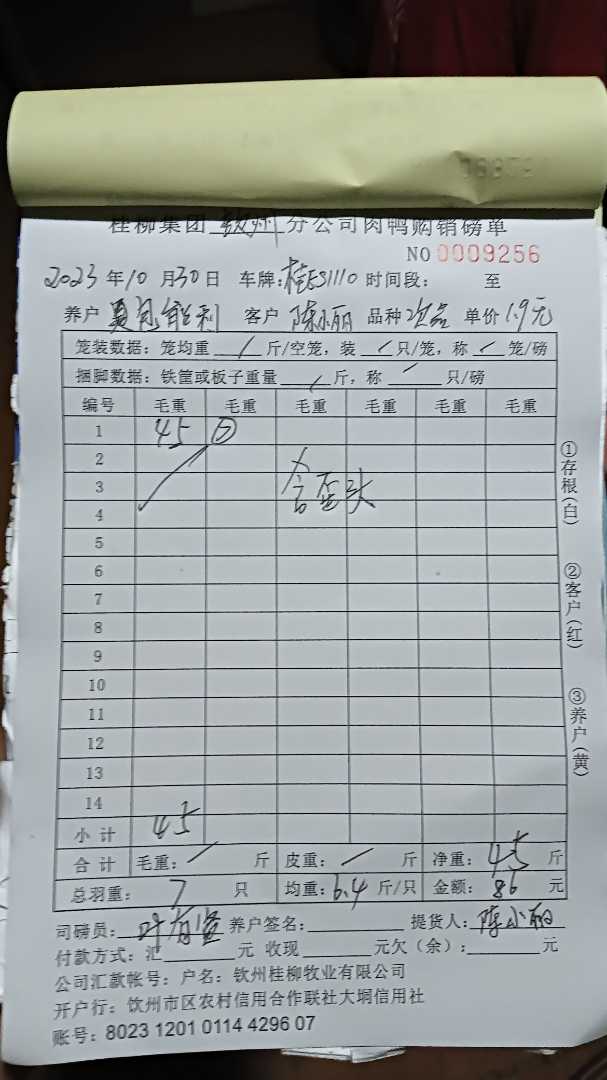 桂柳集团 钦州 分公司肉鸭购销磅单
NO 0009256
2023 年 10 月 30 日 车牌: 桂ES1110 时间段: 至
养户 夏 胜利 客户 陈小丽 品种 次品 单价 1.9元
笼装数据: 笼均重 / 斤/空笼, 装 / 只/笼, 称 / 笼/磅
捆脚数据: 铁筐或板子重量 / 斤, 称 / 只/磅
编号 毛重 毛重 毛重 毛重 毛重 毛重
1 45 ⑦
2
3 含歪头
4
5
6
7
8
9
10
11
12
13
14
小计 45
合计 毛重: / 斤 皮重: / 斤 净重: 45 斤
总羽重: 7 只 均重: 6.4 斤/只 金额: 86 元
司磅员: 叶有贤 养户签名: 提货人: 陈小丽
付款方式: 汇 元 收现 元欠(余): 元
公司汇款帐号: 户名: 钦州桂柳牧业有限公司
开户行: 钦州市区农村信用合作联社大垌信用社
账号: 8023 1201 0114 4296 07
①存根(白)
②客户(红)
③养户(黄)